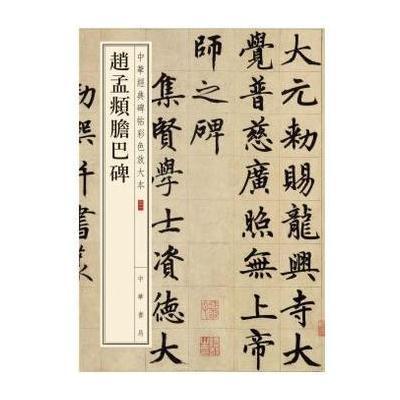 大元勅賜龍興寺大
覺普慈廣照無上帝
師之碑
集賢學士資德大
中華經典碑帖彩色放大本
趙孟頫膽巴碑
中華書局